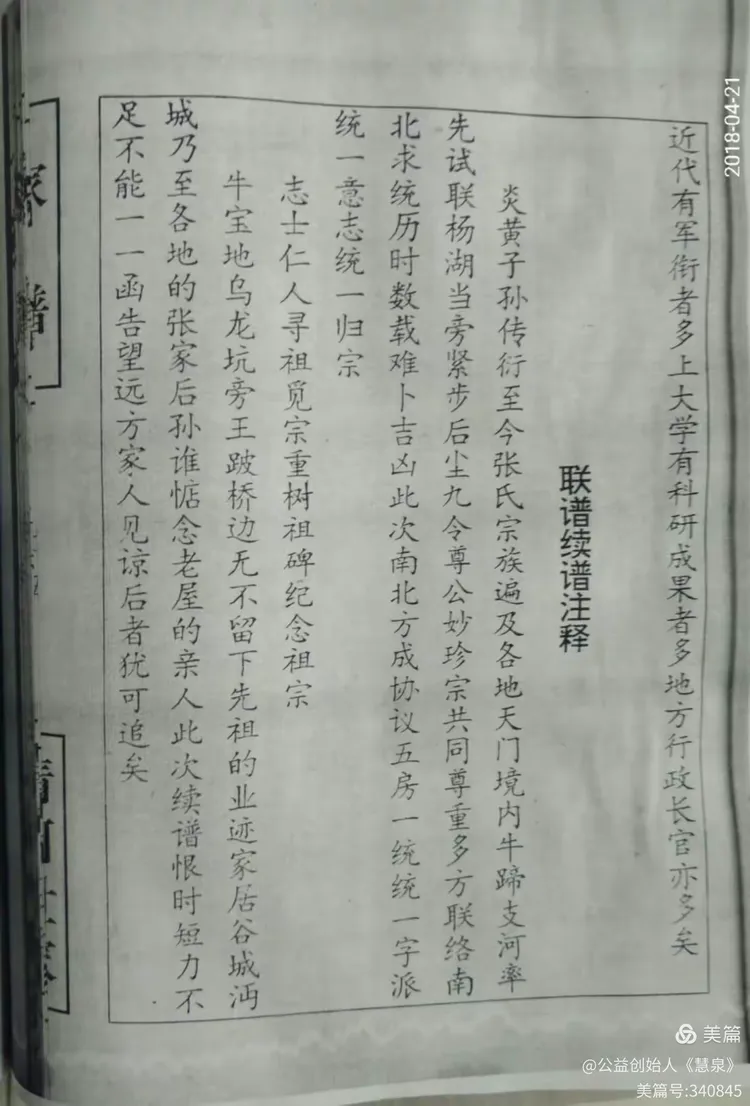 近代有军衔者多上大学有科研成果者多地方行政长官亦多矣
联谱续谱注释
炎黄子孙传衍至今张氏宗族遍及各地天门境内牛蹄支河率
先试联杨湖当旁紧步后尘九令尊公妙珍宗共同尊重多方联络南
北求统历时数载难卜吉凶此次南北方成协议五房一统统一字派
统一意志统一归宗
志士仁人寻祖觅宗重树祖碑纪念祖宗
牛宝地乌龙坑旁王跛桥边无不留下先祖的业迹家居谷城沔
城乃至各地的张家后孙谁惦念老屋的亲人此次续谱恨时短力不
足不能一一函告望远方家人见谅后者犹可追矣
家谱
清河
2018-04-21
美篇
@公益创始人《慧泉》
美篇号:340845